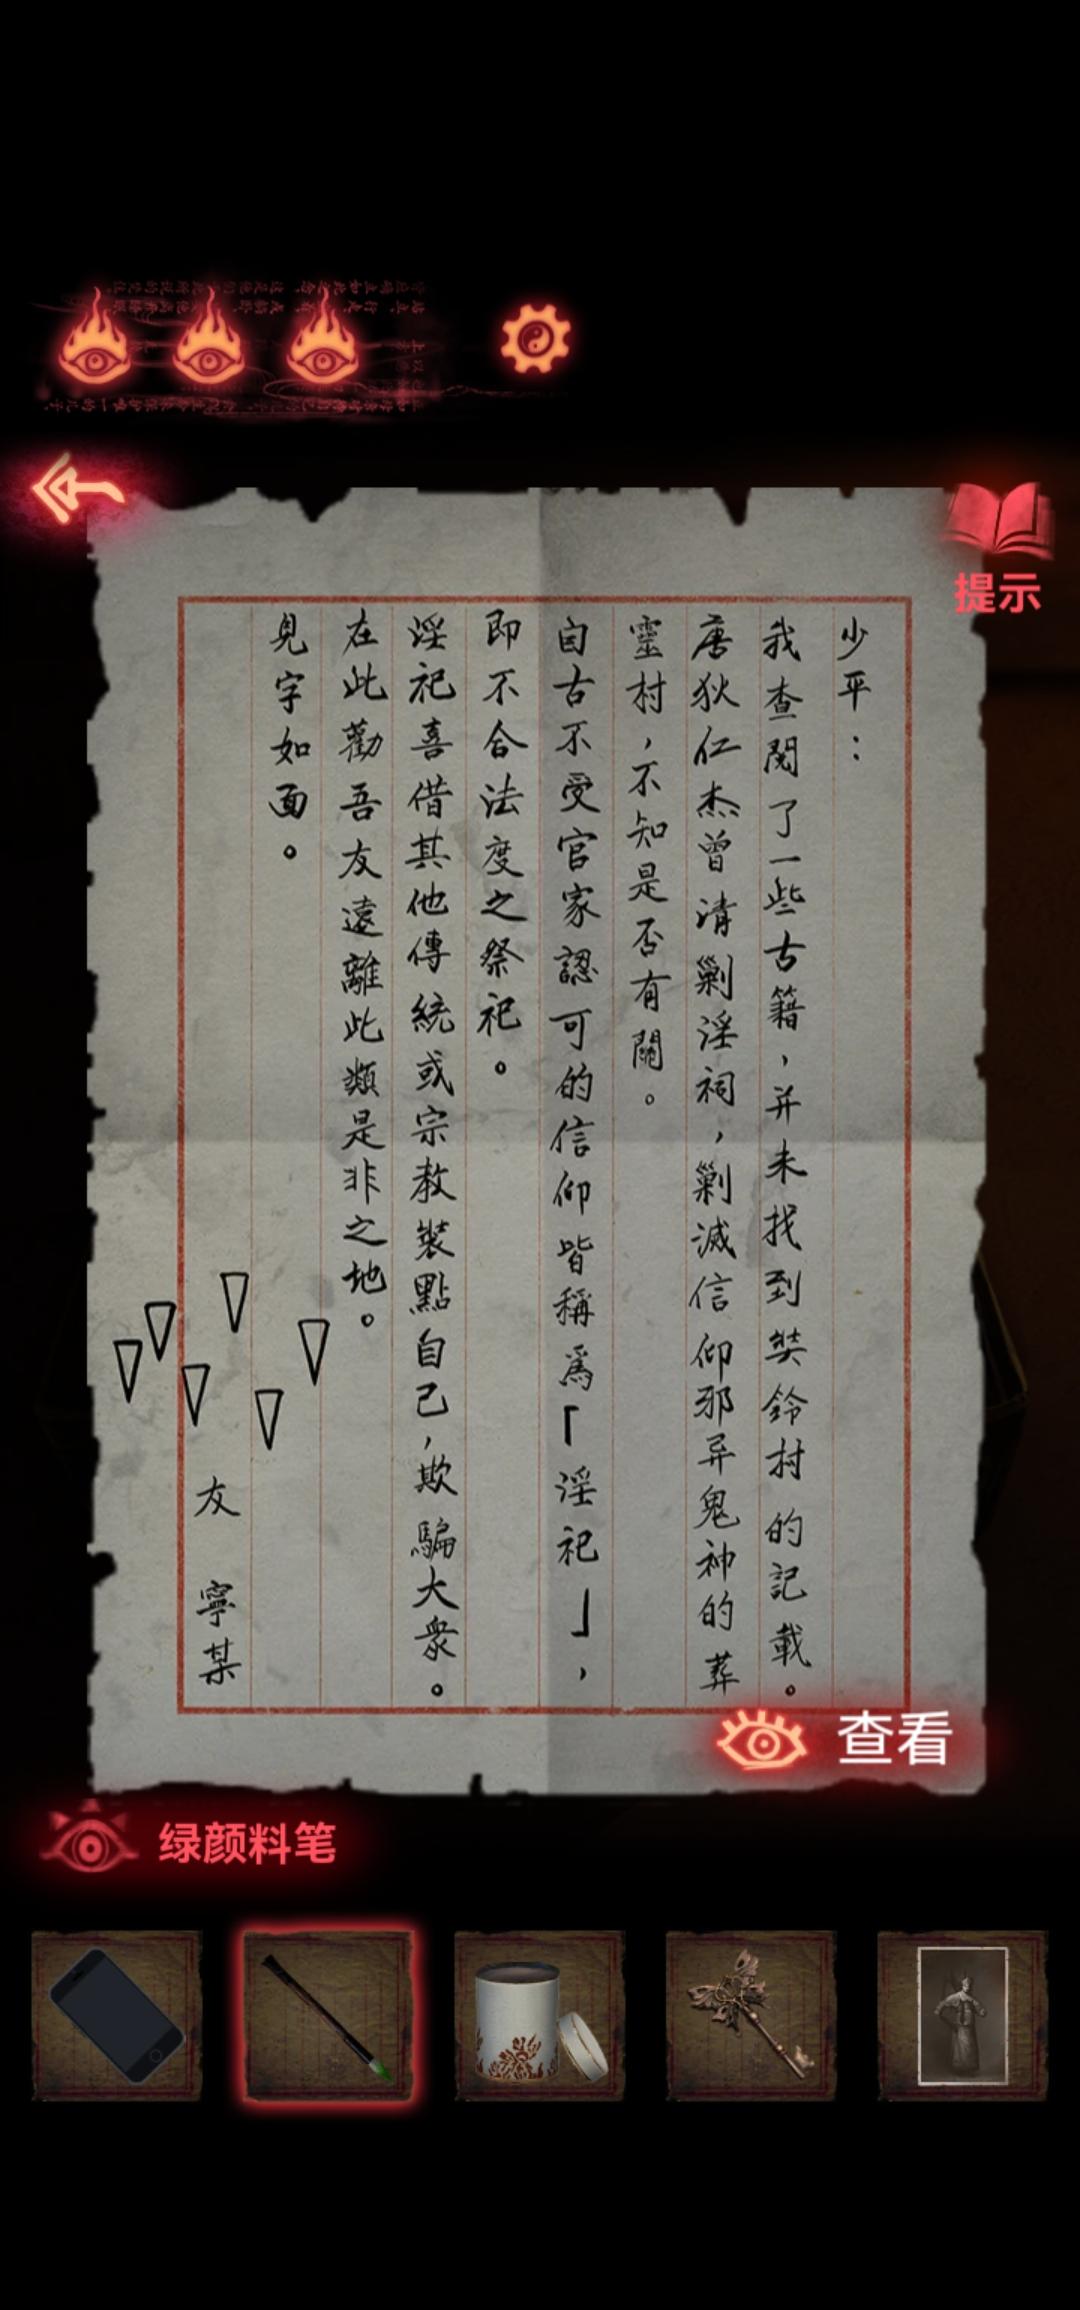 提示
少平：
我查閱了一些古籍，并未找到奘鈴村的記載。
唐狄仁杰曾清剿淫祠，剿滅信仰邪异鬼神的葬
靈村，不知是否有關。
自古不受官家認可的信仰皆稱爲「淫祀」，
即不合法度之祭祀。
淫祀喜借其他傳統或宗教裝點自己，欺騙大衆。
在此勸吾友遠離此類是非之地。
見字如面。
友 寧某
查看
绿颜料笔